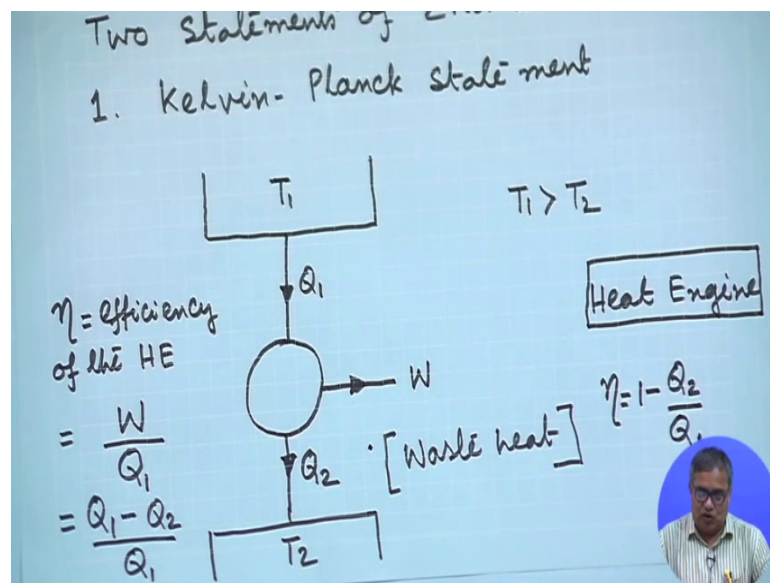 Two Statements of
1. Kelvin-Planck Statement
T₁
T₁ > T₂
Q₁
Heat Engine
η = efficiency
of the HE
= W/Q₁
= (Q₁ - Q₂)/Q₁
W
Q₂ · [Waste heat]
η = 1 - Q₂/Q₁
T₂